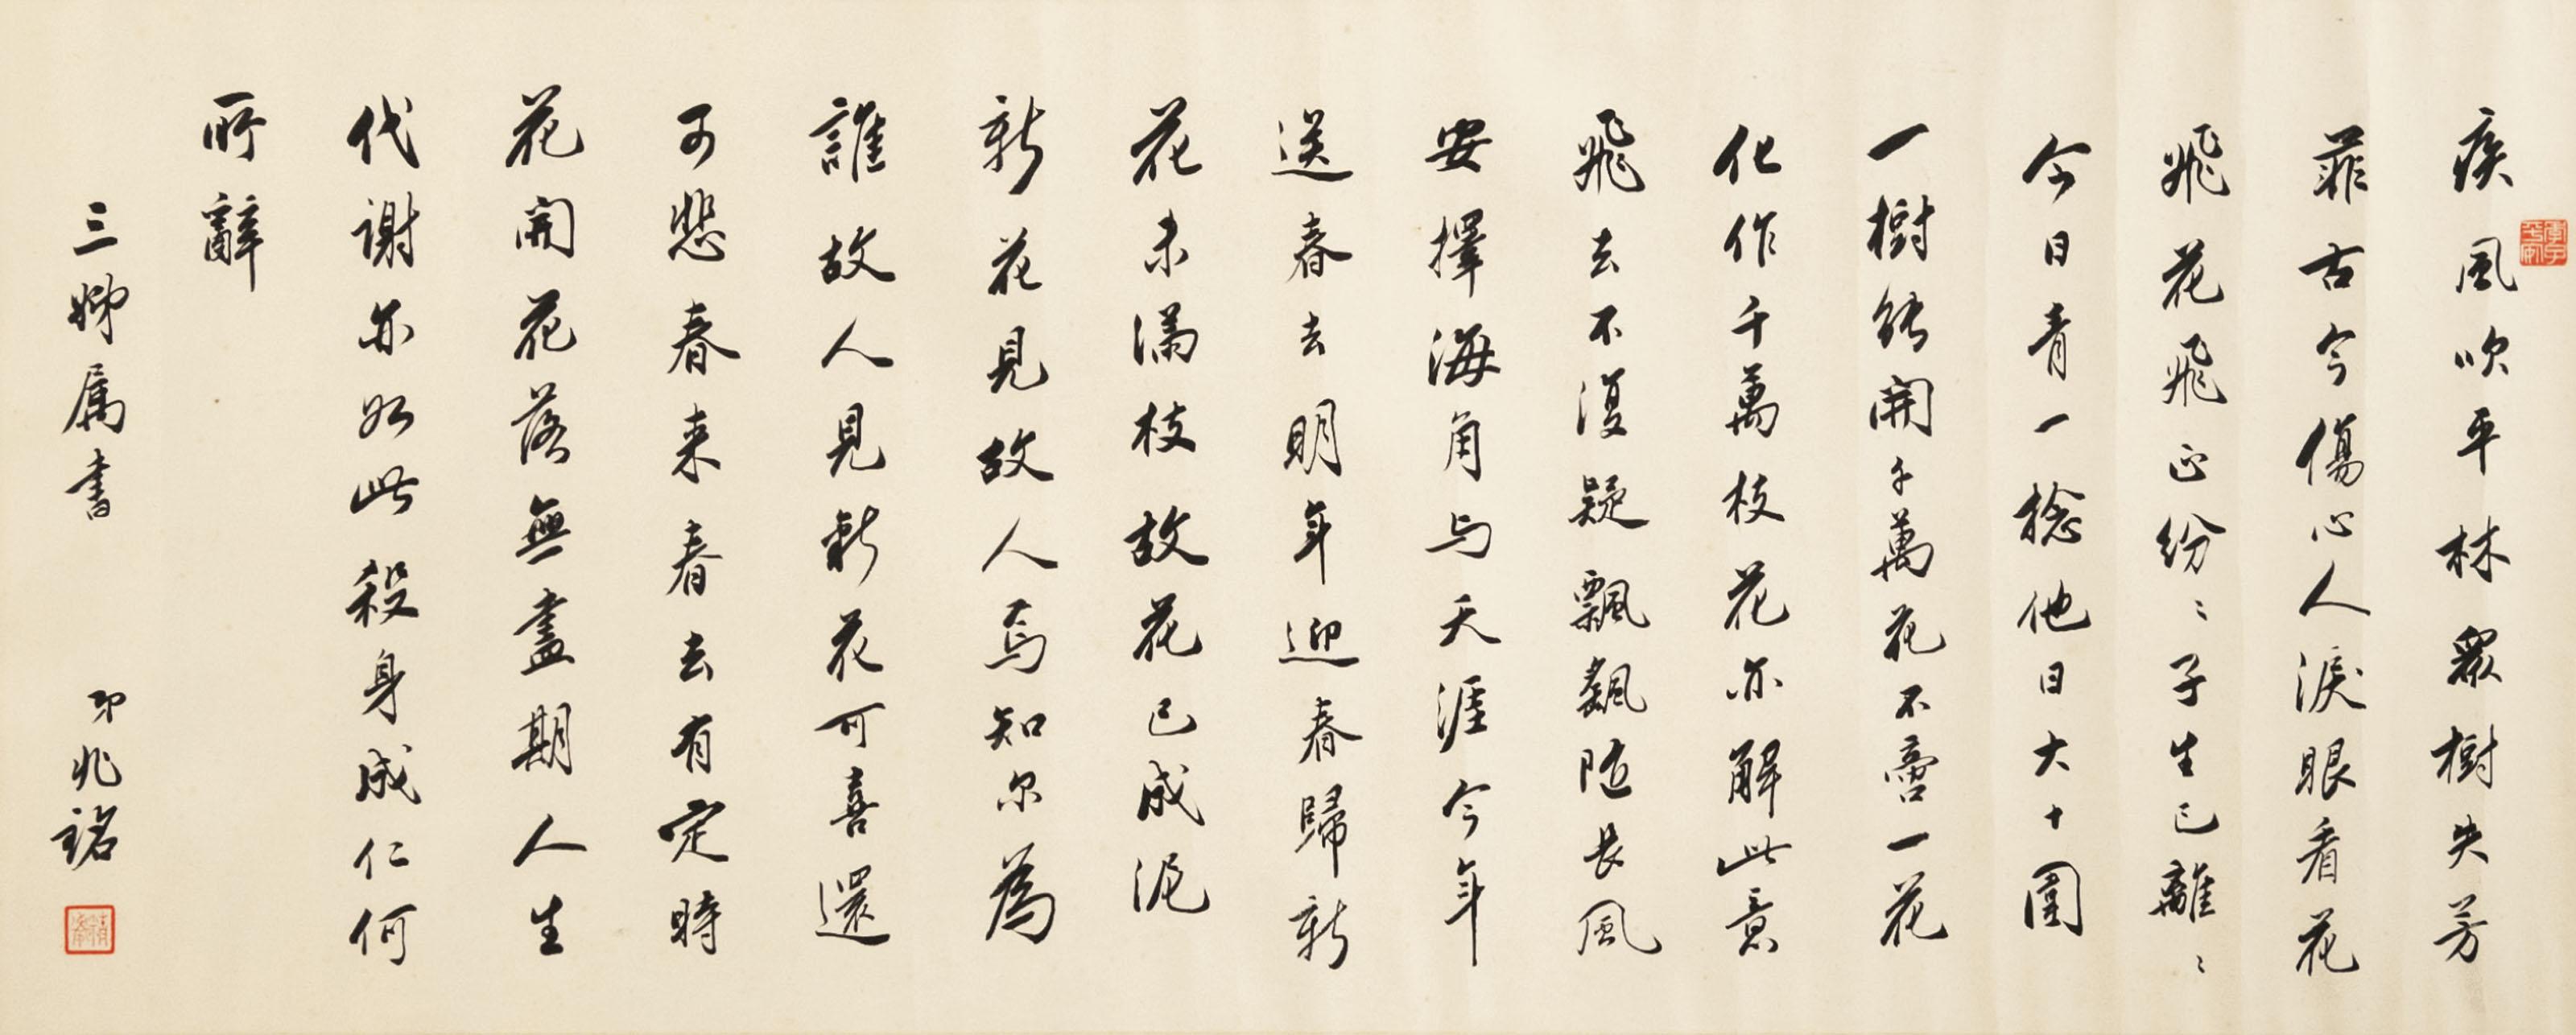 疾風吹平林衆樹失芳
菲古今傷心人淚眼看花
飛花飛正紛〻子生已離〻
今日青一捻他日大十圍
一樹能開千萬花不啻一花
化作千萬枝花亦解此意
飛去不復疑飄飄随長風
安擇海角与天涯今年
送春去明年迎春歸新
花未滿枝故花已成泥
新花見故人焉知尔為
誰故人見新花可喜還
可悲春来春去有定時
花開花落無盡期人生
代謝亦如此殺身成仁何
所辭
三姊属書
兆銘